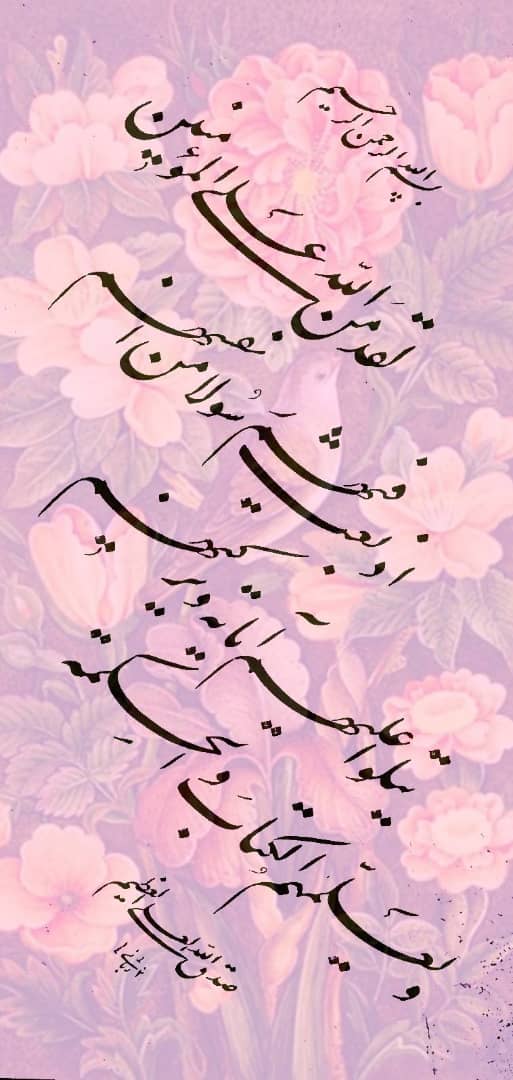 بسم الله الرحمن الرحيم
لقد من الله على المؤمنين
اذ بعث فيهم رسولا من انفسهم
يتلوا عليهم آياته ويزكيهم
و يعلمهم الكتاب و الحكمة
صدق الله العلي العظيم